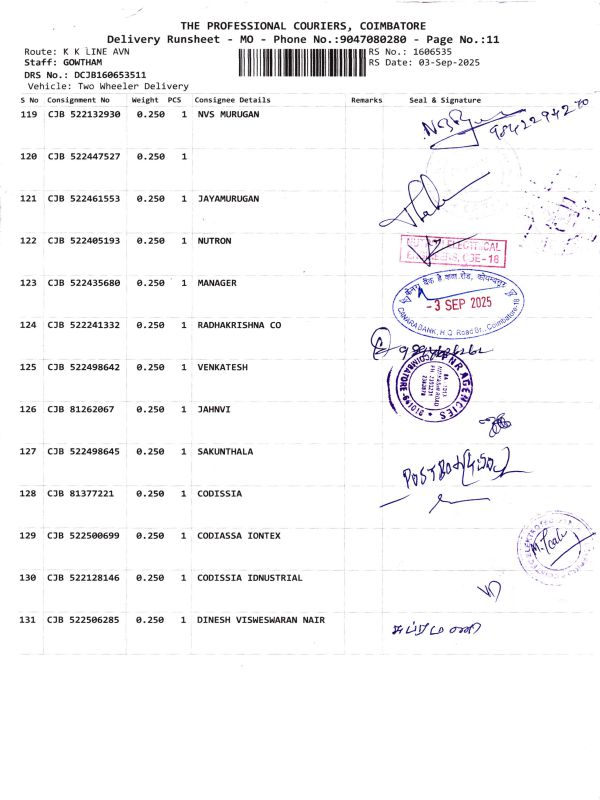 THE PROFESSIONAL COURIERS, COIMBATORE
Delivery Runsheet - MO - Phone No.:9047080280 - Page No.:11
Route: K K LINE AVN RS No.: 1606535
Staff: GOWTHAM RS Date: 03-Sep-2025
DRS No.: DCJB160653511
Vehicle: Two Wheeler Delivery
S No Consignment No Weight PCS Consignee Details Remarks Seal & Signature
119 CJB 522132930 0.250 1 NVS MURUGAN
9842294270
120 CJB 522447527 0.250 1
121 CJB 522461553 0.250 1 JAYAMURUGAN
122 CJB 522405193 0.250 1 NUTRON
ELECTRICAL
CBE-18
123 CJB 522435680 0.250 1 MANAGER
- 3 SEP 2025
CANARA BANK, H.Q. Road Br., Coimbatore-18
124 CJB 522241332 0.250 1 RADHAKRISHNA CO
125 CJB 522498642 0.250 1 VENKATESH
AGENCIES
COIMBATORE
126 CJB 81262067 0.250 1 JAHNVI
127 CJB 522498645 0.250 1 SAKUNTHALA
POST BOX
128 CJB 81377221 0.250 1 CODISSIA
129 CJB 522500699 0.250 1 CODIASSA IONTEX
130 CJB 522128146 0.250 1 CODISSIA IDNUSTRIAL
131 CJB 522506285 0.250 1 DINESH VISWESWARAN NAIR